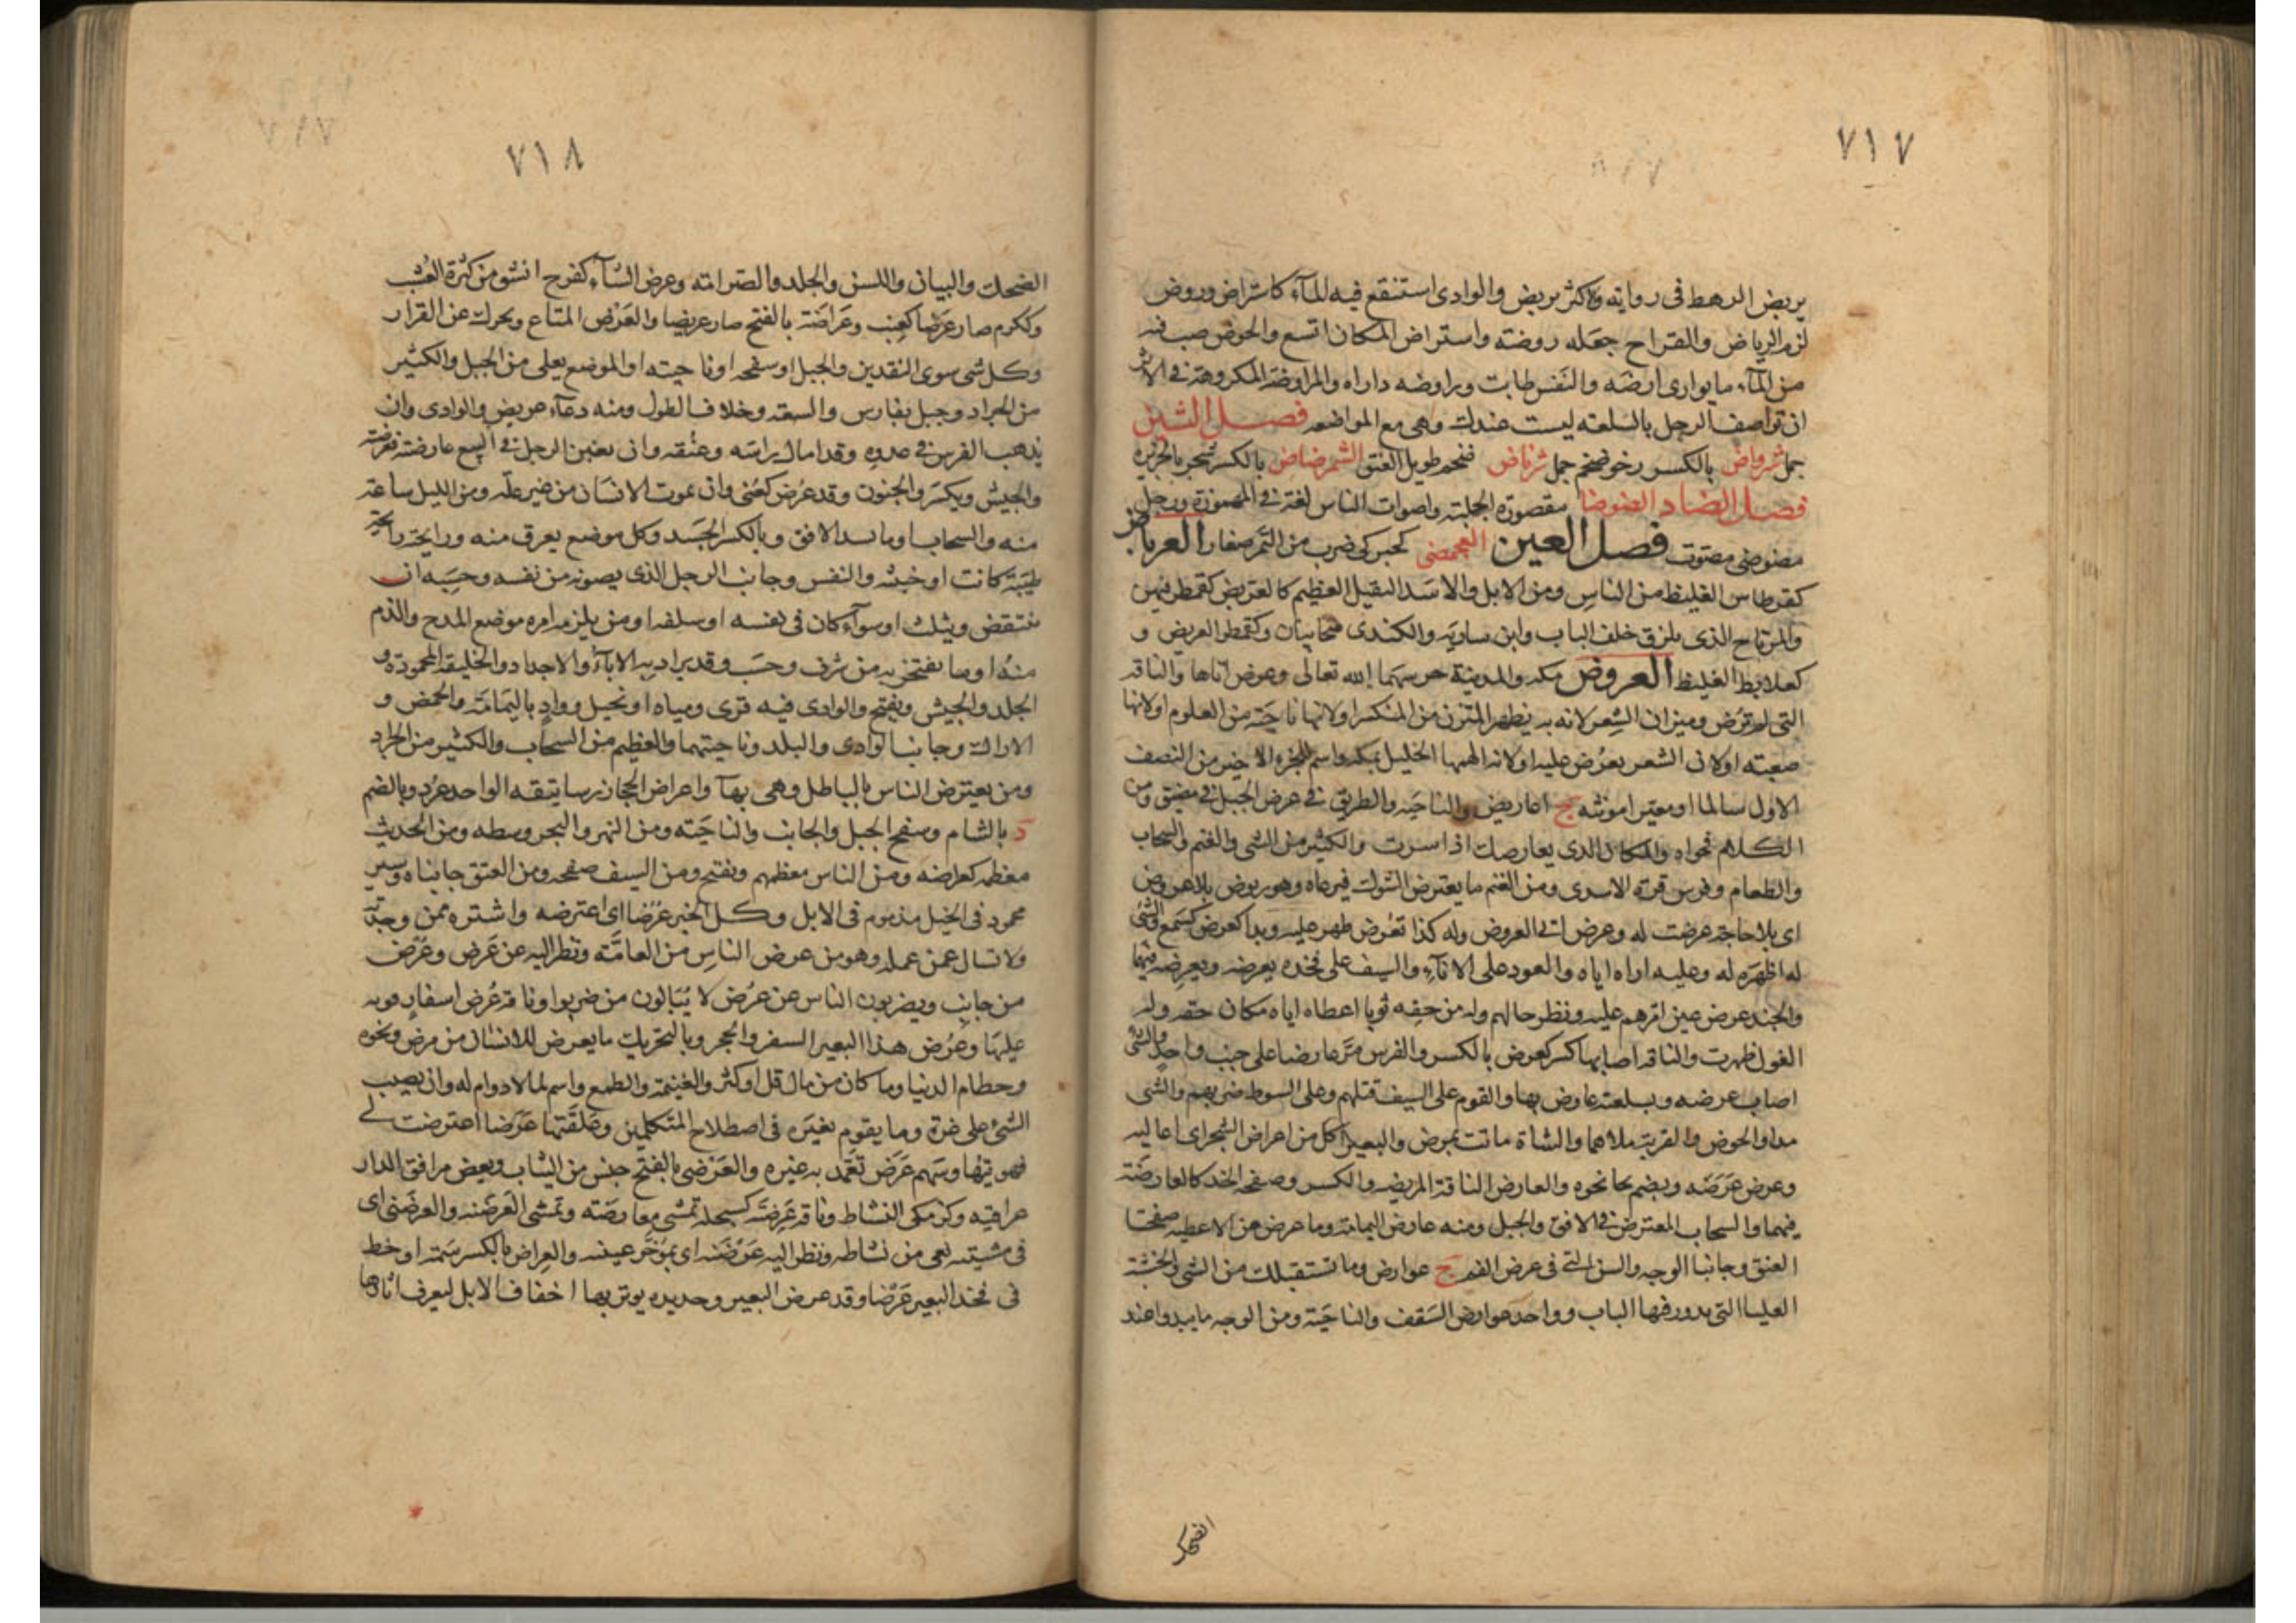 ٧١٧
يريض الرهط في رواية والاكثر يربض والوادي استنقع فيه الماء كاستراض وروض
لزم الرياض والقراح جعله روضة واستراض المكان اتسع والحوض صب فيه
من الماء ما يواري ارضه والنفس طابت وراوضه داراه والمراوضة المكروهة في الاثر
ان تواصف الرجل بالسلعة ليست عندك وهي مع المواضعة فصل الشين
جمل شرواض بالكسر رخو ضخم جمل شرناض ضخم طويل العنق الشمرضاض بالكسر شجر بالجزيرة
فصل الضاد الضوضا مقصورة الجلبة واصوات الناس لغة في المهموزة ورجل
مضوضى مصوت فصل العين العجمضى كحبركى ضرب من التمر صغار العرباض
كقرطاس الغليظ من الناس ومن الابل والاسد الثقيل العظيم كالعربض كقمطر فيهن
والمرتاج الذي يلزق خلف الباب وابن سارية والكندي صحابيان وكقمطر العريض و
كعلابط الغليظ العروض مكة والمدينة حرسهما الله تعالى وعرض اتاها والناقة
التي لم ترض وميزان الشعر لانه به يظهر المتزن من المنكسر او لانها ناحية من العلوم او لانها
صعبة او لان الشعر يعرض عليه او لانه الهمها الخليل بمكة واسم للجزء الاخير من النصف
الاول سالما او مغيرا مونثة ج اعاريض والناحية والطريق في عرض الجبل في مضيق ومن
الكلام فحواه والمكان الذي يعارضك اذا سرت والكثير من الشي والغيم والسحاب
والطعام وفرس قرة الاسدي ومن الغنم ما يعترض الشوك فيرعاه وهو ربوض بلا عروض
اي بلا حاجة عرضت له وعرض اتى العروض وله كذا تعرض ظهر عليه وبدا كعرض كسمع والشي
له اظهره له وعليه اراه اياه والعود على الاناء والسيف على فخذه يعرضه ويعرضه فيهما
والجند عرض عين امرهم عليه ونظر حالهم وله من حقه ثوبا اعطاه اياه مكان حقه وله
الغول ظهرت والناقة اصابها كسر كعرض بالكسر والفرس مر عارضا على جنب واحد والشي
اصاب عرضه وبسلعته عارض بها والقوم على السيف قتلهم وعلى السوط ضربهم والشي
بدا والحوض والقربة ملاهما والشاة ماتت بمرض والبعير اكل من اعراض الشجر اي اعاليه
وعرض عرضه ويضم نحا نحوه والعارض الناقة المريضة والكسر وصفحة الخد كالعارضة
فيهما والسحاب المعترض في الافق والجبل ومنه عارض اليمامة وما عرض من الاعطية صفحتا
العنق وجانبا الوجه والسن التي في عرض الفم ج عوارض وما تستقبلك من الشي والخشبة
العليا التي يدور فيها الباب وواحد عوارض السقف والناحية ومن الوجه ما يبدو عند
الضحك
٧١٨
الضحك والبيان واللسن والجلد والصرامة وعرض الشاء كفرح انشق من كثرة العشب
وككرم صار عرضا كعنب وعراضة بالفتح صار عريضا والعرض المتاع ويحرك عن القزاز
وكل شي سوى النقدين والجبل او سفحه او ناحيته او الموضع يعلى من الجبل والكثير
من الجراد وجبل بفارس والسعة وخلاف الطول ومنه دعاء عريض والوادي وان
يذهب الفرس في عدوه وقد امال راسه وعنقه وان يغبن الرجل في البيع عارضته فعرضته
والجيش ويكسر والجنون وقد عرض كعني وان يموت الانسان من غير علة ومن الليل ساعة
منه والسحاب او ما سد الافق وبالكسر الجسد وكل موضع يعرق منه ورايحته رايحة
طيبة كانت او خبيثة والنفس وجانب الرجل الذي يصونه من نفسه وحسبه ان
ينتقض ويثلب او سواء كان في نفسه او سلفه او من يلزمه امره موضع المدح والذم
منه او ما يفتخر به من شرف وحسب وقد يراد به الاباء والاجداد والخليقة المحمودة و
الجلد والجيش ويفتح والوادي فيه قرى ومياه او نخيل وواد باليمامة والحمض و
الاراك وجانبا لوادي والبلد وناحيتهما والعظيم من السحاب والكثير من الجراد
ومن يعترض الناس بالباطل وهي بهاء واعراض الحجاز رساتيقه الواحد عرض وبالضم
د بالشام وسفح الجبل والجانب والناحية ومن النهر والبحر وسطه ومن الحديث
معظمه كعراضه ومن الناس معظمهم ويفتح ومن السيف صفحه ومن العنق جانباه وسير
محمود في الخيل مذموم في الابل وكل الجبن عرضا اي اعترضه واشتره ممن وجدته
ولا تسال عمن عمله وهو من عرض الناس من العامة ونظر اليه عن عرض وعرض
من جانب ويضربون الناس عن عرض لا يبالون من ضربوا وناقة عرض اسفار قوية
عليها وعرض هذا البعير السفر والحجر وبالتحريك ما يعرض للانسان من مرض ونحوه
وحطام الدنيا وما كان من مال قل او كثر والغنيمة والطمع واسم لما لا دوام له وان يصيب
الشي على غرة وما يقوم بغيره في اصطلاح المتكلمين وعلقتها عرضا اعترضت لي
فهويتها وسهم عرض تعمد به غيره والعرضي بالفتح جنس من الثياب وبعض مرافق الدار
عراقية وكزمكى النشاط وناقة عرضنة كسبحلة تمشي معارضة وتمشي العرضنة والعرضنى اي
في مشيته بغي من نشاطه ونظر اليه عرضنة اي بموخر عينه والعراض بالكسر سمة او خط
في فخذ البعير عرضا وقد عرض البعير وحديدة يوثر بها اخفاف الابل ليعرف اثارها